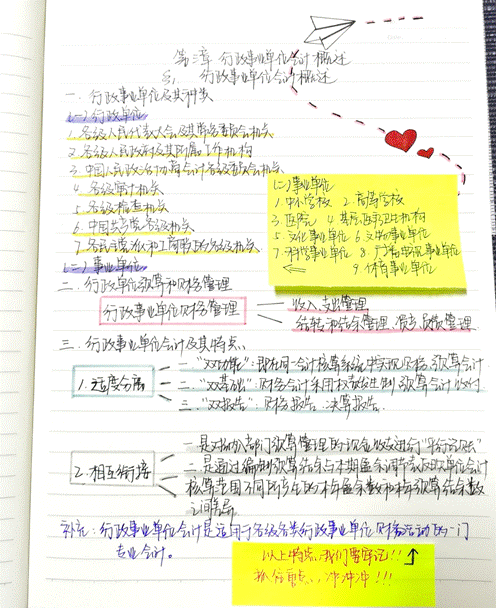 第三章 行政事业单位会计概述
行政事业单位会计概述
一、行政事业单位及其种类
(一)行政单位
1.各级人民代表大会及其常务委员会机关
2.各级人民政府及其所属工作机构
3.中国人民政治协商会议各级委员会机关
4.各级审计机关
5.各级检查机关
6.中国共产党各级机关
7.各民主党派和工商联的各级机关
(二)事业单位
1.中小学校 2.高等学校
3.医院 4.基层医疗卫生机构
5.文化事业单位 6.文物事业单位
7.科学事业单位 8.广播电视事业单位
9.体育事业单位
(二)事业单位
二、行政单位预算和财务管理
行政事业单位财务管理
收入、支出管理
结转和结余管理、资产、负债管理
三、行政事业单位会计及其特点
1.适度分离
一、“双功能”：即在同一会计核算系统中实现财务、预算会计
二、“双基础”：财务会计采用权责发生制 预算会计收付
三、“双报告”：财务报告、决算报告.
2.相互衔接
一是对纳入部门预算管理的现金收支进行“平行记账”
二是通过编制预算结余与本期盈余调节表
核算范围不同所产生的本年盈余数和本年预算结余数
之间差异
补充：行政事业单位会计是适用于各级各类行政事业单位财务活动的一门
专业会计。
以上特点,我们要牢记!!
抓住重点,冲冲冲!!!